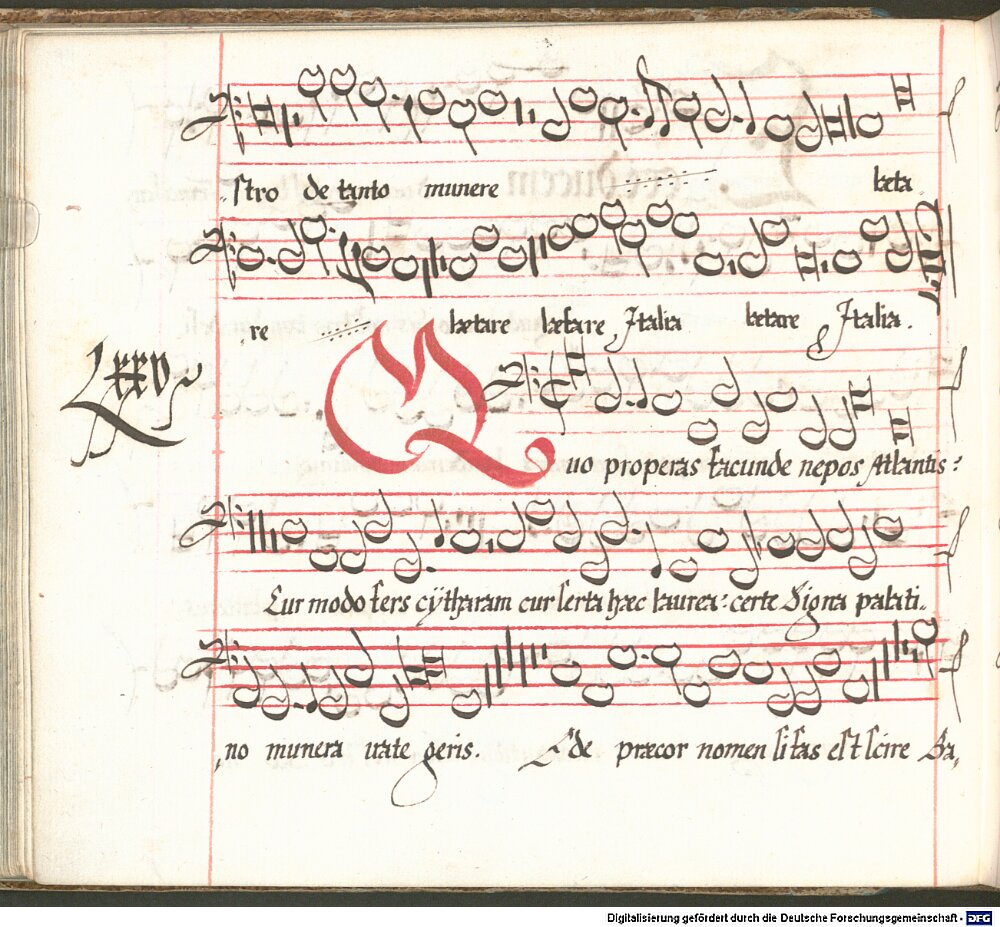 stro de tanto munere læta
re lætare lætare Italia lætare Italia.
LXXV
Quo properas facunde nepos Atlantis:
Cur modo fers cÿtharam cur serta hæc laurea: certe Digna palati
no munera uate geris. Ede præcor nomen si fas est scire Ba,
Digitalisierung gefördert durch die Deutsche Forschungsgemeinschaft - DFG